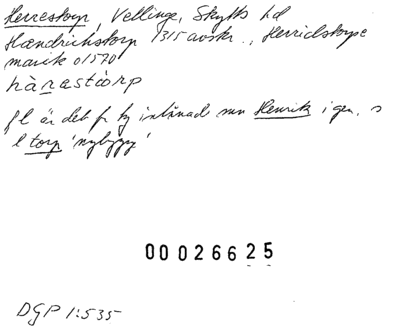 Herrestorp, Vellinge, Skytts hd
Hændrichstorp 1315 avskr., Herridstorpe
marik 01570
hàrastòrp
fl är det fr ty inlånade mn Henrik i gen. o
l torp 'nybygge'
00026625
DGP 1:535